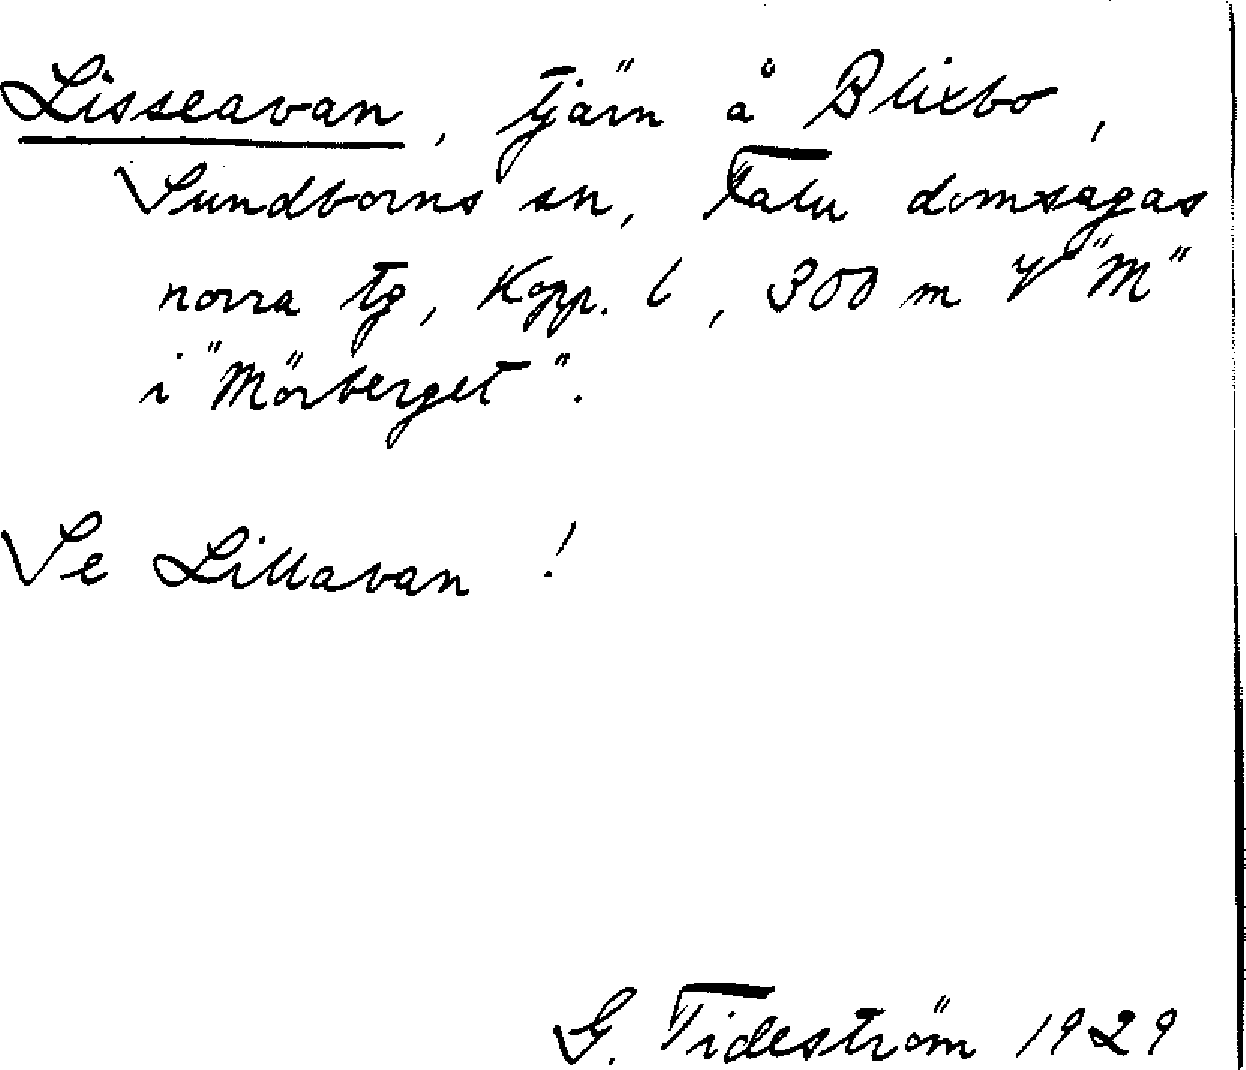 Lisseavan, tjärn å Blixbo,
Sundborns sn, Falu domsagas
norra tg, Kopp. l, 300 m V "M"
i "Mörberget".
Se Lillavan!
G. Tideström 1929